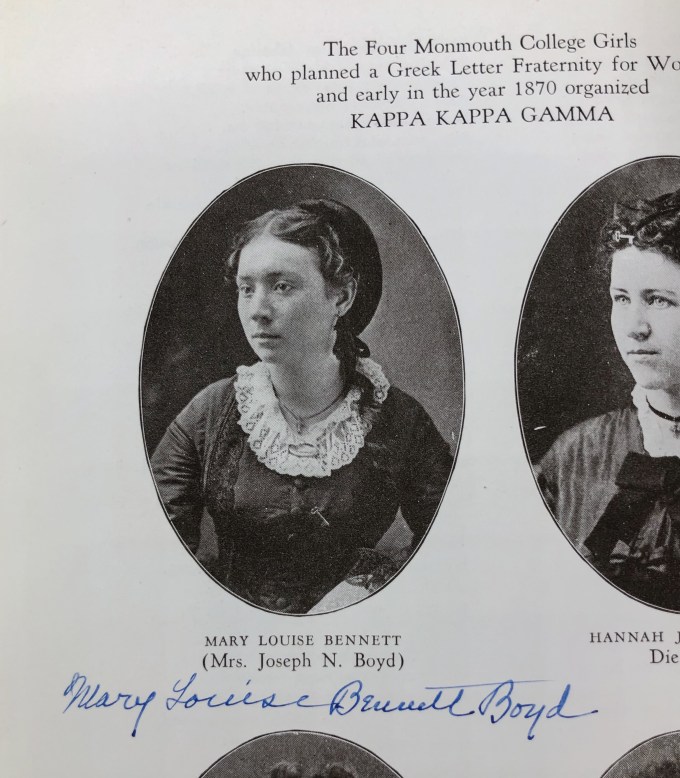 The Four Monmouth College Girls
who planned a Greek Letter Fraternity for Wo
and early in the year 1870 organized
KAPPA KAPPA GAMMA
MARY LOUISE BENNETT
(Mrs. Joseph N. Boyd)
HANNAH J
Die
Mary Louise Bennett Boyd